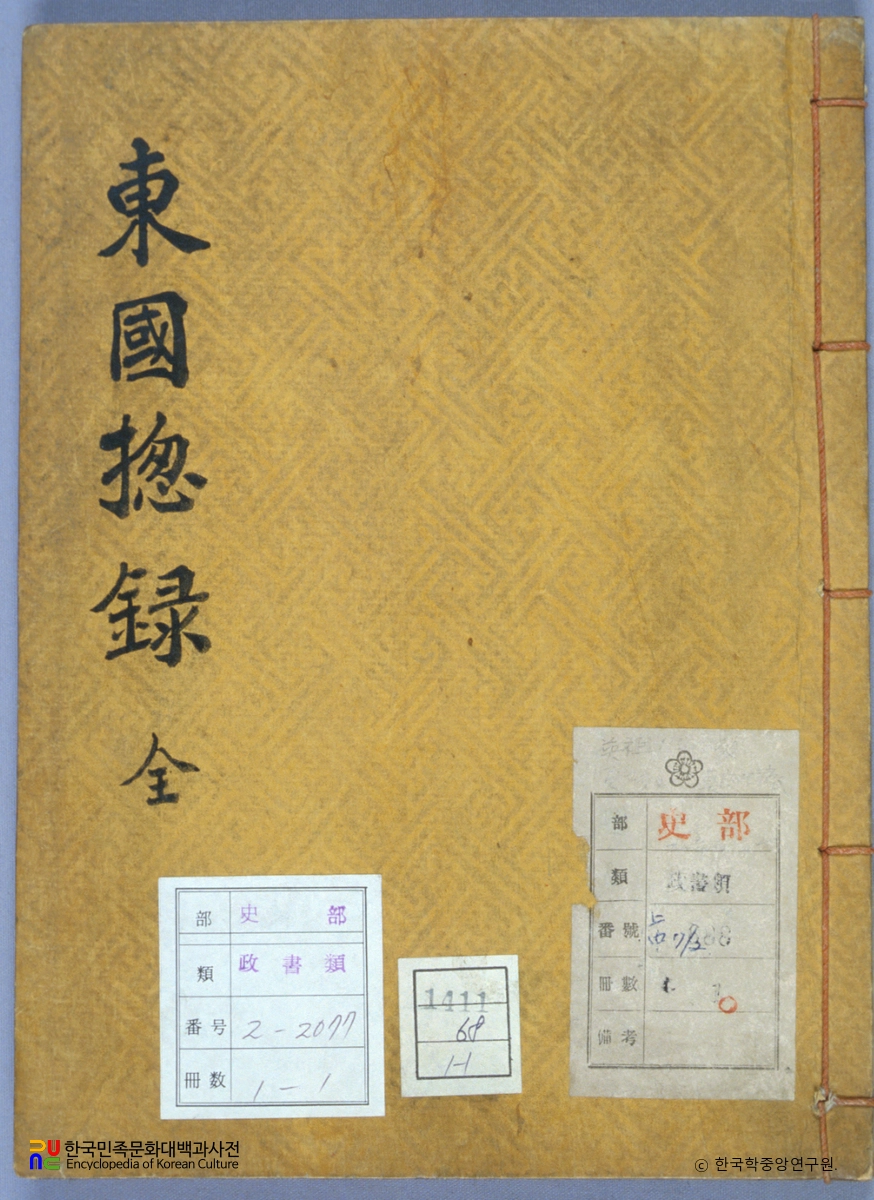 東國揔録 全
部 史部
類 政書類
番号 2-2077
冊数 1-1
1411
68
1-1
部 史部
類 政書類
番號
冊數
備考
한국민족문화대백과사전
Encyclopedia of Korean Culture
ⓒ 한국학중앙연구원.